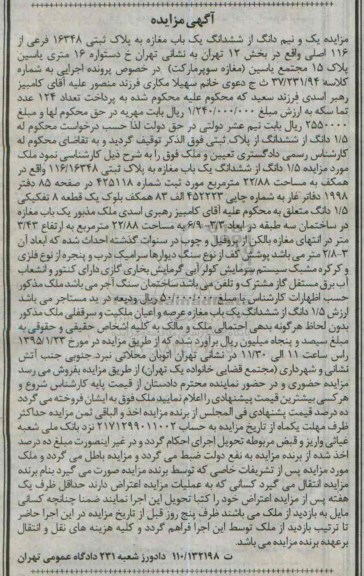 آگهی مزایده
مزایده یک و نیم دانگ از ششدانگ یک باب مغازه به پلاک ثبتی ۱۶۳۴۸ فرعی از
۱۱۶ اصلی واقع در بخش ۱۲ تهران به نشانی تهران خ دستواره ۱۶ متری یاسین
پلاک ۱۵ مجتمع یاسین (مغازه سوپرمارکت) در خصوص پرونده اجرایی به شماره
کلاسه ۳۷/۲۳۱/۹۴ ث ح دعوی خانم سهیلا مکاری فرزند منصور علیه آقای کامبیز
رهبر اسدی فرزند سعید که محکوم علیه محکوم شده به پرداخت تعداد ۱۲۴ عدد
تما سکه به ارزش مبلغ ۱/۲۴۰/۰۰۰/۰۰۰ ریال بابت مهریه در حق محکوم لها و مبلغ
۲۵۵۰۰۰۰ ریال بابت نیم عشر دولتی در حق دولت لذا حسب درخواست محکوم له
۱/۵ دانگ از ششدانگ از پلاک ثبتی فوق الذکر توقیف گردید و به تقاضای محکوم له
کارشناس رسمی دادگستری تعیین و ملک فوق را به شرح ذیل کارشناسی نمود ملک
مورد مزایده ۱/۵ دانگ از ششدانگ یک باب مغازه به پلاک ثبتی ۱۱۶/۱۶۳۴۸ واقع در
همکف به مساحت ۲۲/۸۸ مترمربع مورد ثبت شماره ۴۲۵۱۱۸ در صفحه ۸۵ دفتر
۱۹۹۸ دفاتر غار به شماره چاپی ۴۵۲۲۲۳ الف ۸۳ همکف بلوک یک قطعه ۸ تفکیکی
۱/۵ دانگ متعلق به محکوم علیه آقای کامبیز رهبری اسدی ملک مذبور یک باب مغازه
در ساختمان سه طبقه در ابعاد ۳/۳-۶/۹ به مساحت ۲۲/۸۸ مترمربع به ارتفاع ۳/۴۳
متر در انتهای مغازه بالکن از پروفیل و چوب در سنوات گذشته احداث شده که ابعاد آن
۲/۸-۳ متر می باشد پوشش کف از نوع سنگ دیوارها سرامیک درب و پنجره از نوع فلزی
و کرکره مشبک سیستم سرمایش کولر آبی گرمایش بخاری گازی دارای کنتور و انشعاب
آب برق مستقل گاز مشترک و تلفن می باشد ساختمان سنگ آجر می باشد ملک مذکور
حسب اظهارات کارشناس با مبلغ ۵۰/۰۰۰/۰۰۰ ریال ودیعه در ید مستاجر می باشد
ارزش ۱/۵ دانگ از ششدانگ یک باب مغازه عرصه و اعیان ملکیت و سرقفلی ملک مذکور
بدون لحاظ هرگونه بدهی احتمالی ملک و مالک به کلیه اشخاص حقیقی و حقوقی به
مبلغ سیصد و پنجاه میلیون ریال برآورد شده که از طریق مزایده در مورخ ۱۳۹۵/۱/۲۳
راس ساعت ۱۱ الی ۱۱/۳۰ در نشانی تهران اتوبان محلاتی نبرد جنوبی جنب آتش
نشانی و شهرداری (مجتمع قضایی خانواده یک تهران) از طریق مزایده بفروش می رسد
مزایده حضوری و در حضور نماینده محترم دادستان از قیمت پایه کارشناس شروع و
هر کسی بیشترین قیمت پیشنهادی را اعلام نمایید ملک فوق به ایشان فروخته می گردد
ده درصد قیمت پشنهادی فی المجلس از برنده مزایده اخذ و الباقی ثمن مزایده حداکثر
ظرف مهلت یکماه از تاریخ مزایده به حساب ۲۱۷۱۲۹۹۰۱۱۰۰۲ نزد بانک ملی شعبه
غیاثی واریز و قبض مربوطه تحویل اجرای احکام گردد و در غیر اینصورت مبلغ ده درصد
اخذ شده از برنده مزایده به نفع دولت ضبط می گردد و مزایده باطل می گردد و ملک
مورد مزایده پس از تشریفات خاصی که توسط برنده مزایده صورت می گیرد بنام برنده
مزایده انتقال می گیرد کسانی که به عملیات مزایده اعتراض دارند حداقل ظرف یک
هفته پس از مزایده اعتراض خود را کتبا تحویل این اجرا نمایند ضمنا چنانچه کسانی
مایل به بازدید از ملک می باشند ظرف پنج روز قبل از تاریخ مزایده در این اجرا حاضر
تا ترتیب بازدید از ملک توسط این اجرا فراهم گردد و کلیه هزینه های نقل و انتقال
برعهده برنده مزایده می باشد.
ت ۱۱۰/۱۳۲۱۹۸ دادورز شعبه ۲۳۱ دادگاه عمومی تهران